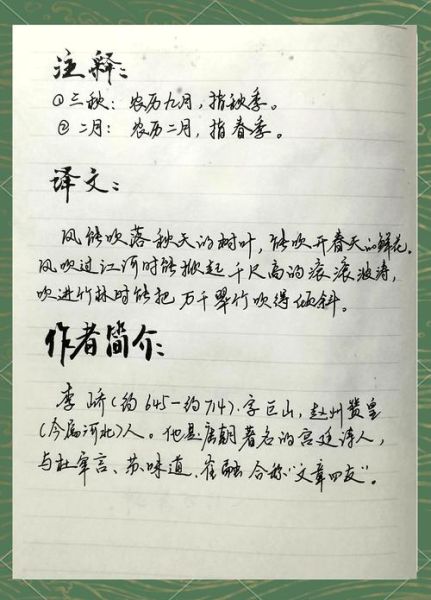 注释:
①三秋:农历九月,指秋季。
②二月:农历二月,指春季。
译文:
风能吹落秋天的树叶,能吹开春天的鲜花。
风吹过江河时能掀起千尺高的滚滚波涛,
吹进竹林时能把万千翠竹吹得倾斜。
作者简介:
李峤(约645-约714).字巨山,赵州赞皇
(今属河北)人。他是唐朝著名的宫廷诗人,
与杜审言、苏味道、崔融合称“文章四友”。